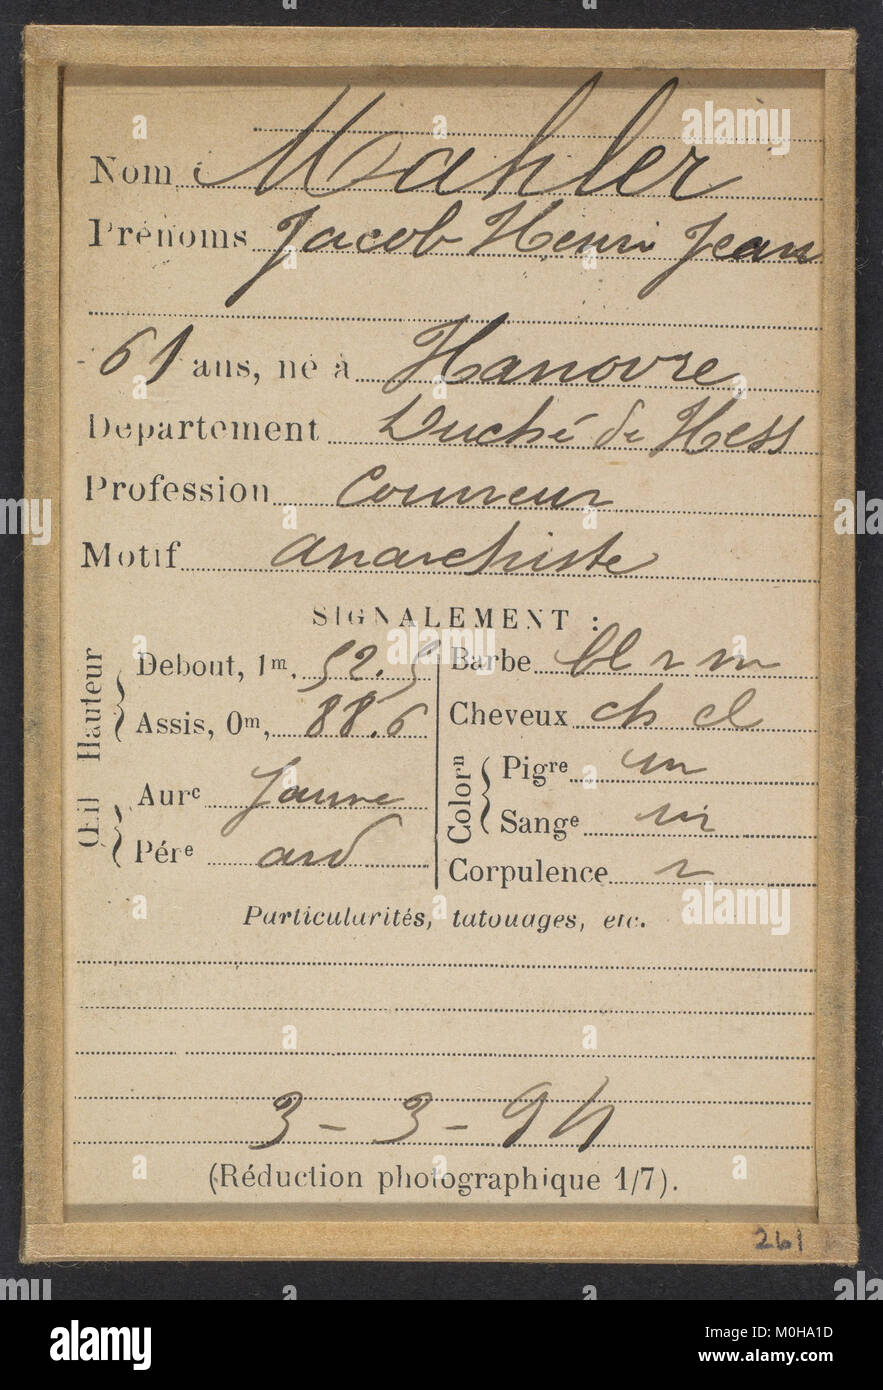 Nom Mahler
Prénoms Jacob Henri Jean
61 ans, né à Hanovre
Département Duché de Hess
Profession Couvreur
Motif anarchiste
SIGNALEMENT :
Hauteur
Debout, 1m, 52.5
Assis, 0m, 88.6
Œil
Aure Jaune
Père
Barbe bl n m
Cheveux ch cl
Colorn
Pigre m
Sange m
Corpulence
Particularités, tatouages, etc.
3-3-94
(Réduction photographique 1/7).
261
a alamy stock photo
M0HA1D
www.alamy.com